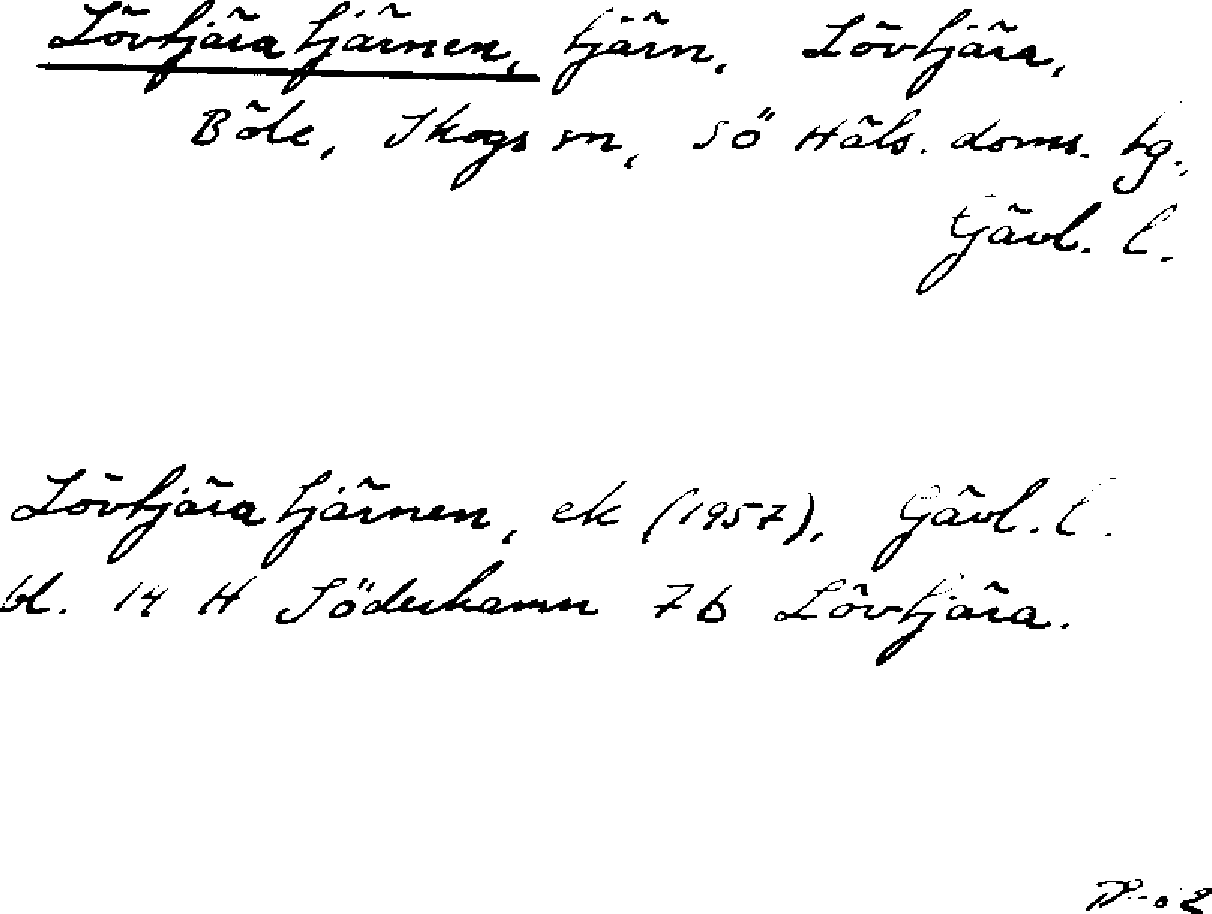 Lövtjäratjärnen, tjärn, Lövtjära,
Böle, Skogs sn, Sö Häls. doms. tg.,
Gävl. l.
Lövtjäratjärnen, ek (1957), Gävl. l.
bl. 14 H Söderhamn 7b Lövtjära.